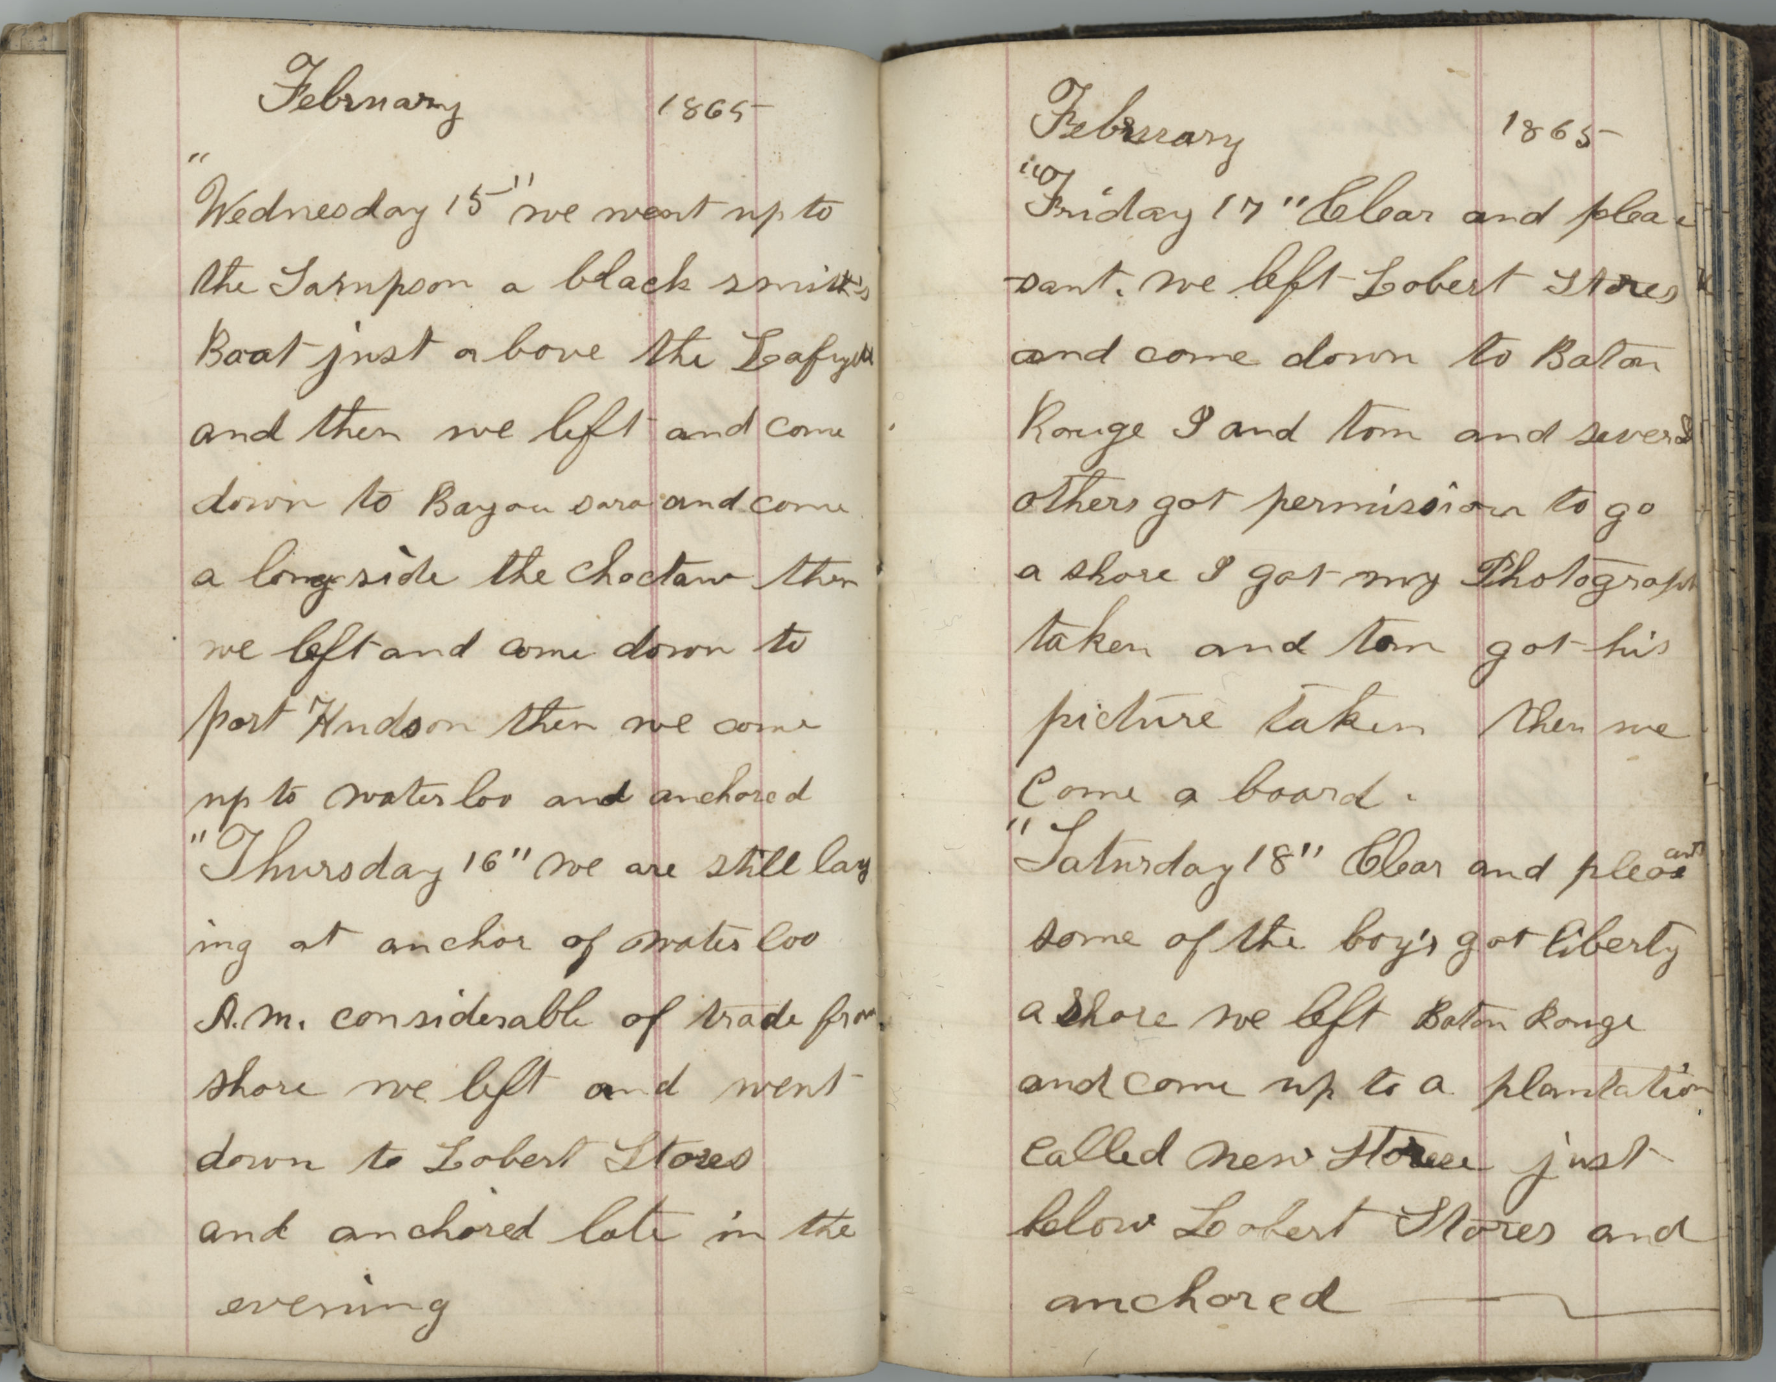 February 1865
"Wednesday 15" we went up to
the Sampson a black smith's
Boat just a bove the Lafyett
and then we left and come
down to Bayou sara and come
a long side the choctaw then
we left and come down to
port Hudson then we come
up to waterloo and anchored
"Thursday 16" we are still lay
ing at anchor of waterloo
A.M. considerable of trade from
shore we left and went
down to Lobert Stores
and anchored late in the
evening
February 1865
"Friday 17" Clear and plea
sant. we left Lobert Stores
and come down to Baton
Rouge I and tom and several
others got permission to go
a shore I got my Photograph
taken and tom got his
picture taken then we
Come a board.
"Saturday 18" Clear and pleasant
some of the boy's got liberty
a shore we left Baton Rouge
and come up to a plantation
called new Store just
below Lobert Stores and
anchored